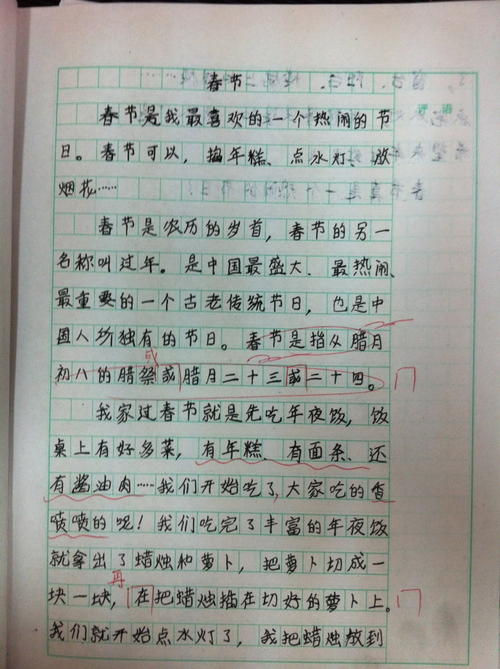 春节
春节是我最喜欢的一个热闹的节
日。春节可以，捣年糕、点水灯、放
烟花……
春节是农历的岁首，春节的另一
名称叫过年。是中国最盛大、最热闹、
最重要的一个古老传统节日，也是中
国人所独有的节日。春节是指从腊月
或
初八的腊祭或腊月二十三或二十四。
我家过春节就是先吃年夜饭，饭
桌上有好多菜，有年糕、有面条、还
有酱油肉……我们开始吃了，大家吃的香
喷喷的呢！我们吃完了丰富的年夜饭
就拿出了蜡烛和萝卜，把萝卜切成一
再
块一块，在把蜡烛插在切好的萝卜上。
我们就开始点水灯了，我把蜡烛放到